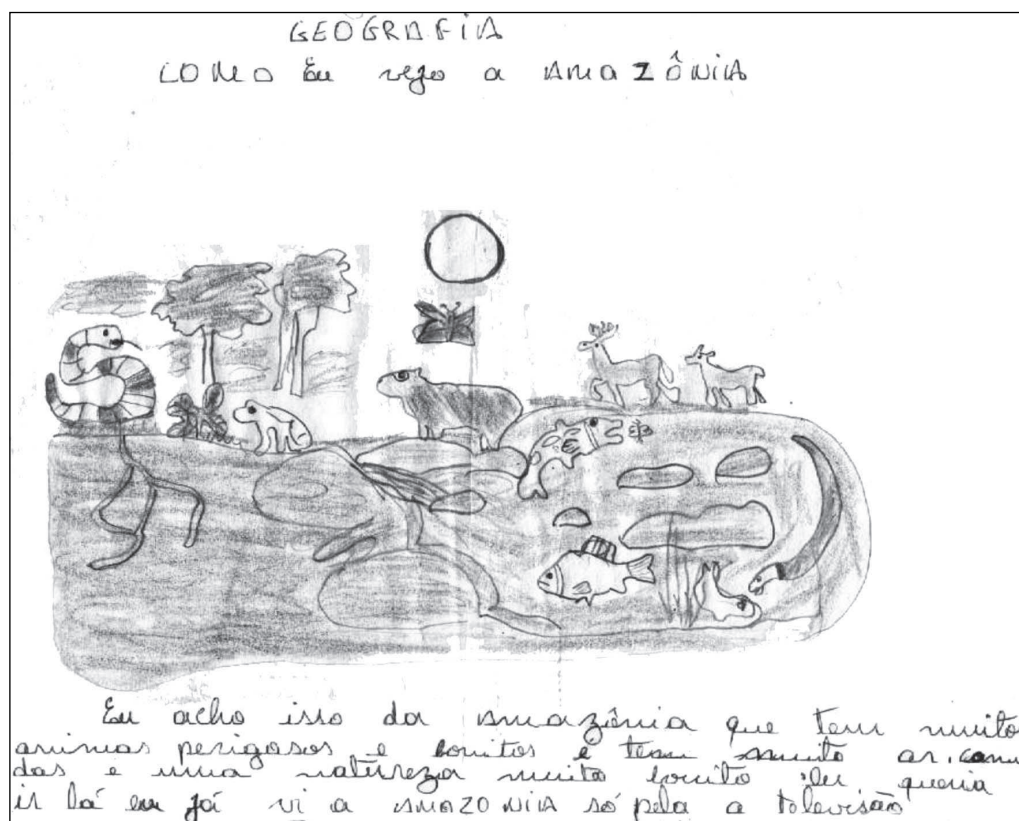 GEOGRAFIA
COMO Eu vejo a AMAZÔNIA
Eu acho isso da Amazônia que tem muito
animas perigosos e bonitos e tem muito
das e uma natureza muito bonito queria
ir lá eu já vi a AMAZONIA só pela a televisão